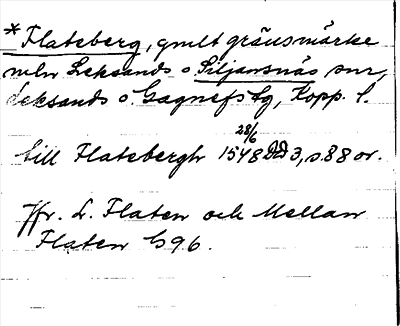 *Flateberg, gmlt gränsmärke
mln Leksands o. Siljansnäs snr,
Leksands o. Gagnefs tg, Kopp. l.
till Flatebergh 1548 28/6 DD 3, s. 88 or.
Jfr. L. Flaten och Mellan
Flaten G 96.